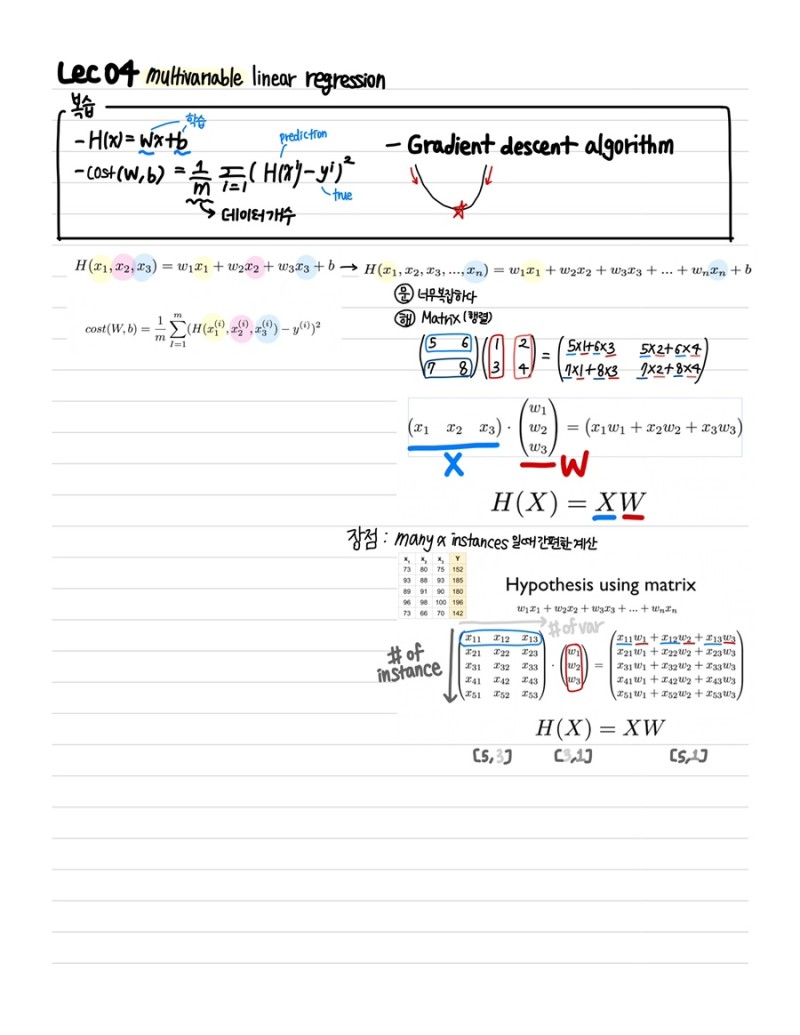 Lec 04 multivariable linear regression
복습
학습
- H(x) = Wx+b
prediction
- cost(W, b) = 1/m Σ i=1 ( H(xⁱ) - yⁱ )²
true
데이터 개수
- Gradient descent algorithm
H(x₁, x₂, x₃) = w₁x₁ + w₂x₂ + w₃x₃ + b → H(x₁, x₂, x₃, ..., xₙ) = w₁x₁ + w₂x₂ + w₃x₃ + ... + wₙxₙ + b
cost(W, b) = 1/m Σ I=1 m (H(x₁⁽ⁱ⁾, x₂⁽ⁱ⁾, x₃⁽ⁱ⁾) − y⁽ⁱ⁾)²
문 너무복잡하다
해 Matrix (행렬)
(5 6) (1 2) = (5x1+6x3 5x2+6x4)
(7 8) (3 4) (7x1+8x3 7x2+8x4)
(x₁ x₂ x₃) · (w₁ w₂ w₃) = (x₁w₁ + x₂w₂ + x₃w₃)
X W
H(X) = XW
장점 : many x instances 일때 간편한 계산
x₁ x₂ x₃ Y
73 80 75 152
93 88 93 185
89 91 90 180
96 98 100 196
73 66 70 142
Hypothesis using matrix
w₁x₁ + w₂x₂ + w₃x₃ + ... + wₙxₙ
# of var
# of
instance
x₁₁ x₁₂ x₁₃ x₁₁w₁ + x₁₂w₂ + x₁₃w₃
x₂₁ x₂₂ x₂₃ w₁ x₂₁w₁ + x₂₂w₂ + x₂₃w₃
x₃₁ x₃₂ x₃₃ · w₂ = x₃₁w₁ + x₃₂w₂ + x₃₃w₃
x₄₁ x₄₂ x₄₃ w₃ x₄₁w₁ + x₄₂w₂ + x₄₃w₃
x₅₁ x₅₂ x₅₃ x₅₁w₁ + x₅₂w₂ + x₅₃w₃
H(X) = XW
[5, 3] [3, 1] [5, 1]